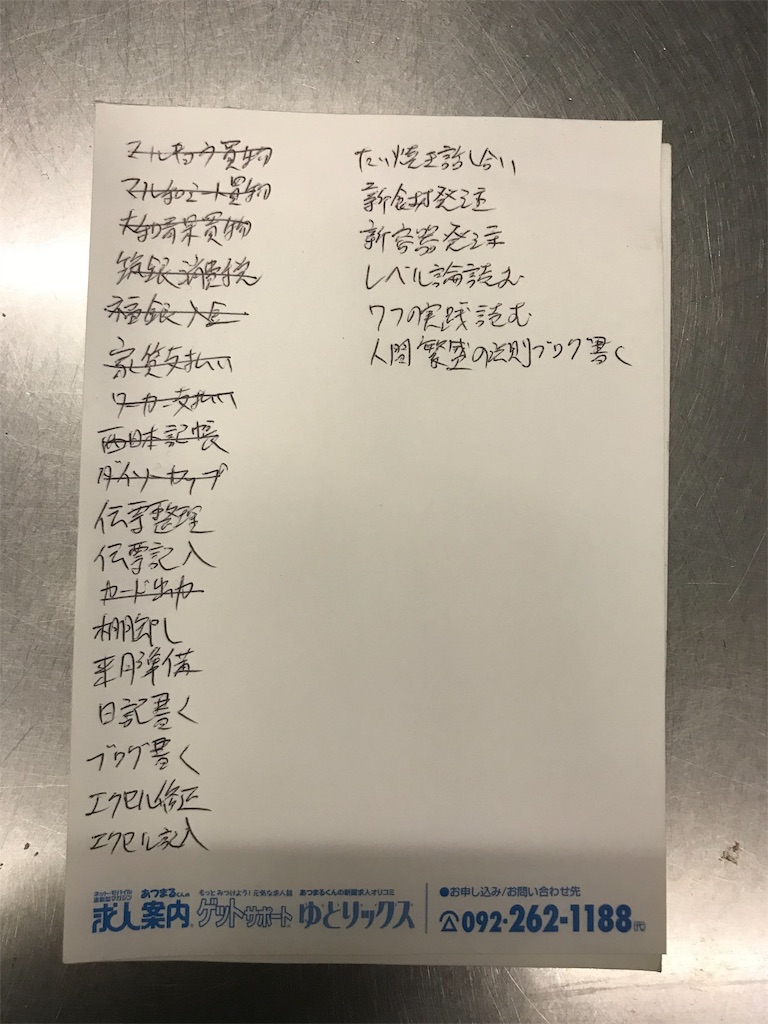 マルキョウ買物
マル和ミート買物
大和青果買物
筑銀消費税
福銀入金
家賃支払い
ワーカー支払い
西日本記帳
ダイソーカップ
伝票整理
伝票記入
カード出力
棚卸し
来月準備
日記書く
ブログ書く
エクセル修正
エクセル記入
たい焼き話し合い
新食材発注
新容器発注
レベル論読む
7つの実践読む
人間繁盛の法則ブログ書く
ネット・モバイル 連動型マガジン あつまるくんの 求人案内
もっとみつけよう!元気な求人誌 ゲットサポート
あつまるくんの新聞求人オリコミ ゆとりックス
●お申し込み/お問い合わせ先
092-262-1188(代)